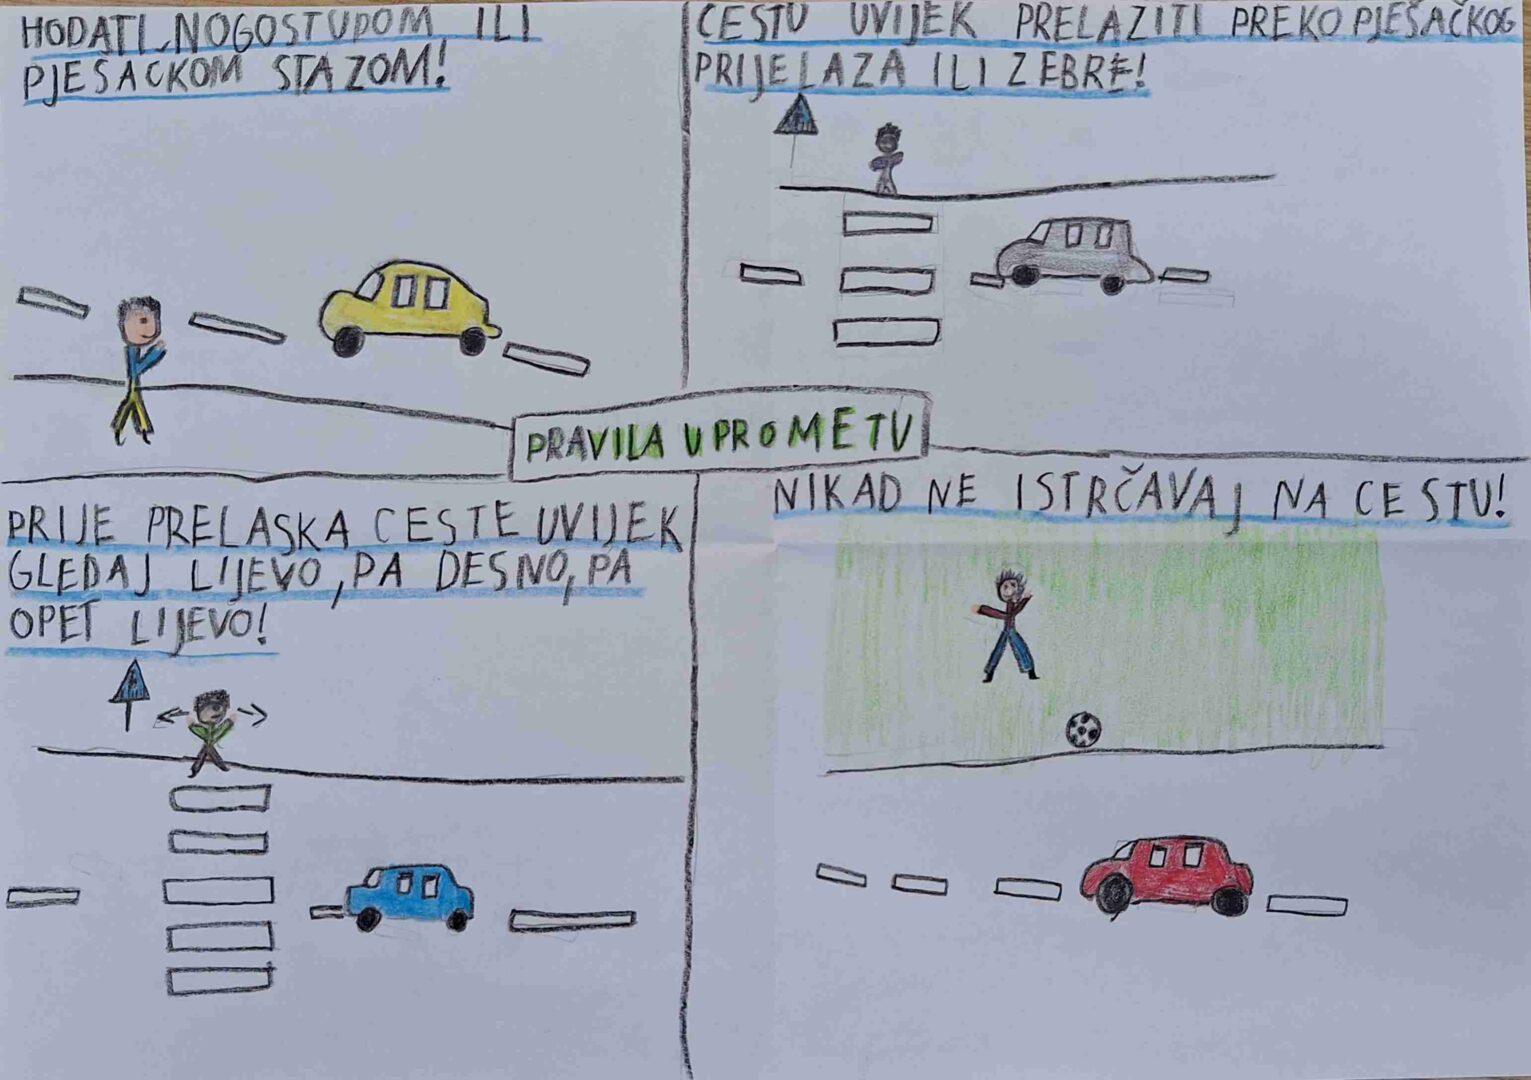 HODATI NOGOSTUPOM ILI
PJEŠAČKOM STAZOM!
CESTU UVIJEK PRELAZITI PREKO PJEŠAČKOG
PRIJELAZA ILI ZEBRE!
PRAVILA U PROMETU
PRIJE PRELASKA CESTE UVIJEK
GLEDAJ LIJEVO, PA DESNO, PA
OPET LIJEVO!
NIKAD NE ISTRČAVAJ NA CESTU!